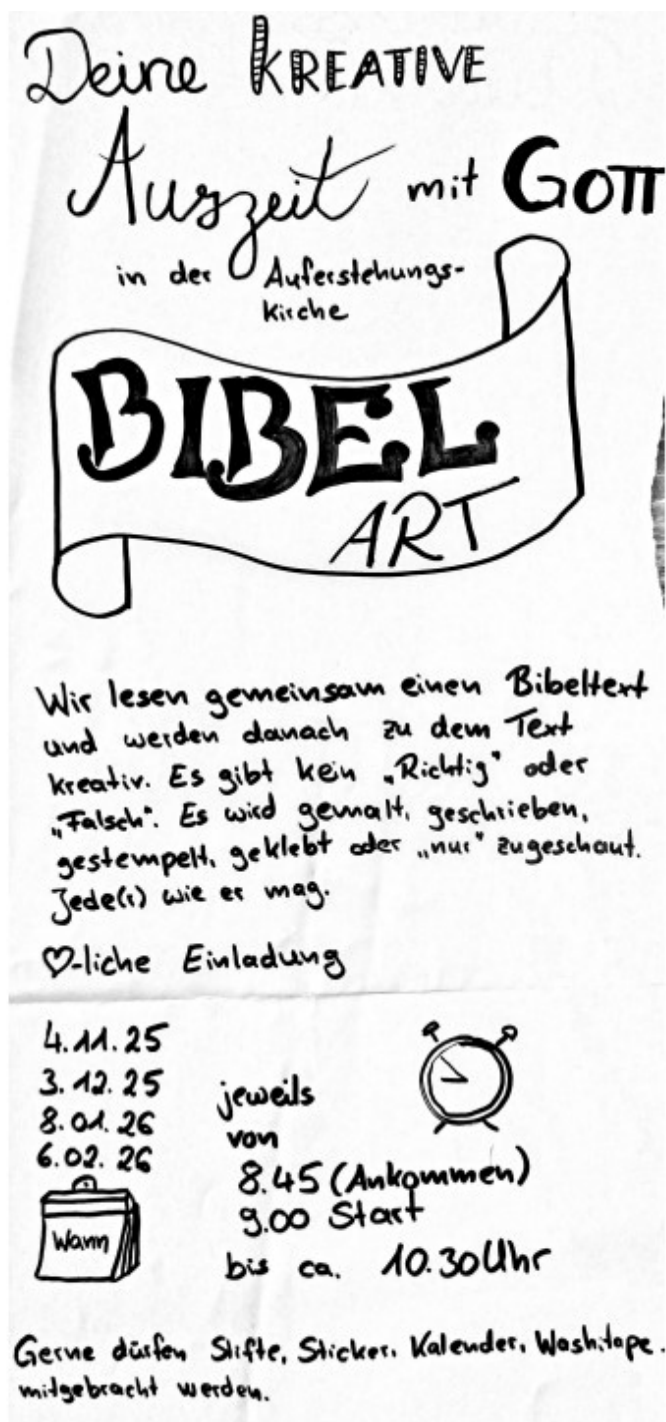 Deine KREATIVE
Auszeit mit GOTT
in der Auferstehungs-
kirche
BIBEL
ART
Wir lesen gemeinsam einen Bibeltext
und werden danach zu dem Text
kreativ. Es gibt kein „Richtig" oder
„Falsch". Es wird gemalt, geschrieben,
gestempelt, geklebt oder „nur" zugeschaut.
Jede(r) wie er mag.
♡-liche Einladung
4.11.25
3.12.25
8.01.26
6.02.26
Wann
jeweils
von
8.45 (Ankommen)
9.00 Start
bis ca. 10.30 Uhr
Gerne dürfen Stifte, Sticker, Kalender, Washitape.
mitgebracht werden.